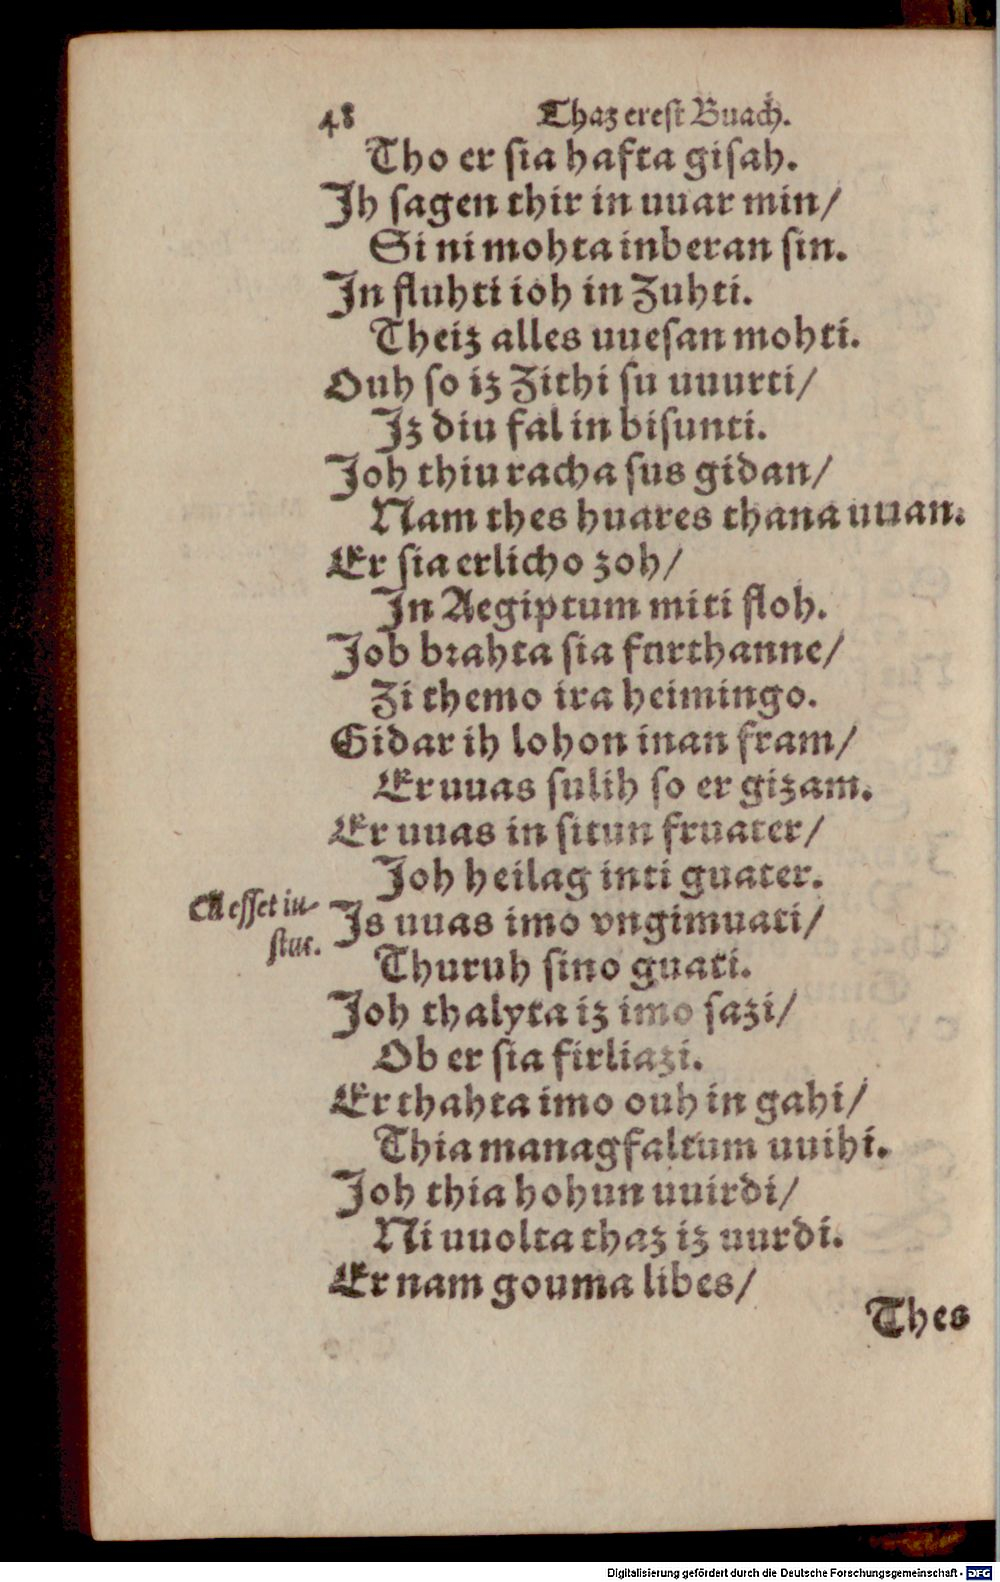 48 Thaz erest Buach.
Tho er sia hafta gisah.
Jh sagen thir in uuar min/
Si ni mohta inberan sin.
Jn fluhti ioh in Zuhti.
Theiz alles uuesan mohti.
Ouh so iz Zithi su uuurti/
Jz diu fal in bisunti.
Joh thiu racha sus gidan/
Nam thes huares thana uuan.
Er sia erlicho zoh/
Jn Aegiptum miti floh.
Job brahta sia furthanne/
Zi themo ira heimingo.
Gidar ih lohon inan fram/
Er uuas sulih so er gizam.
Er uuas in situn fruater/
Joh heilag inti guater.
Cũ esset iu-
stus.
Js uuas imo vngimuati/
Thuruh sino guati.
Joh thalyta iz imo sazi/
Ob er sia firliazi.
Er thahta imo ouh in gahi/
Thia managfaltum uuihi.
Joh thia hohun uuirdi/
Ni uuolta thaz iz uurdi.
Er nam gouma libes/
Thes
Digitalisierung gefördert durch die Deutsche Forschungsgemeinschaft - DFG